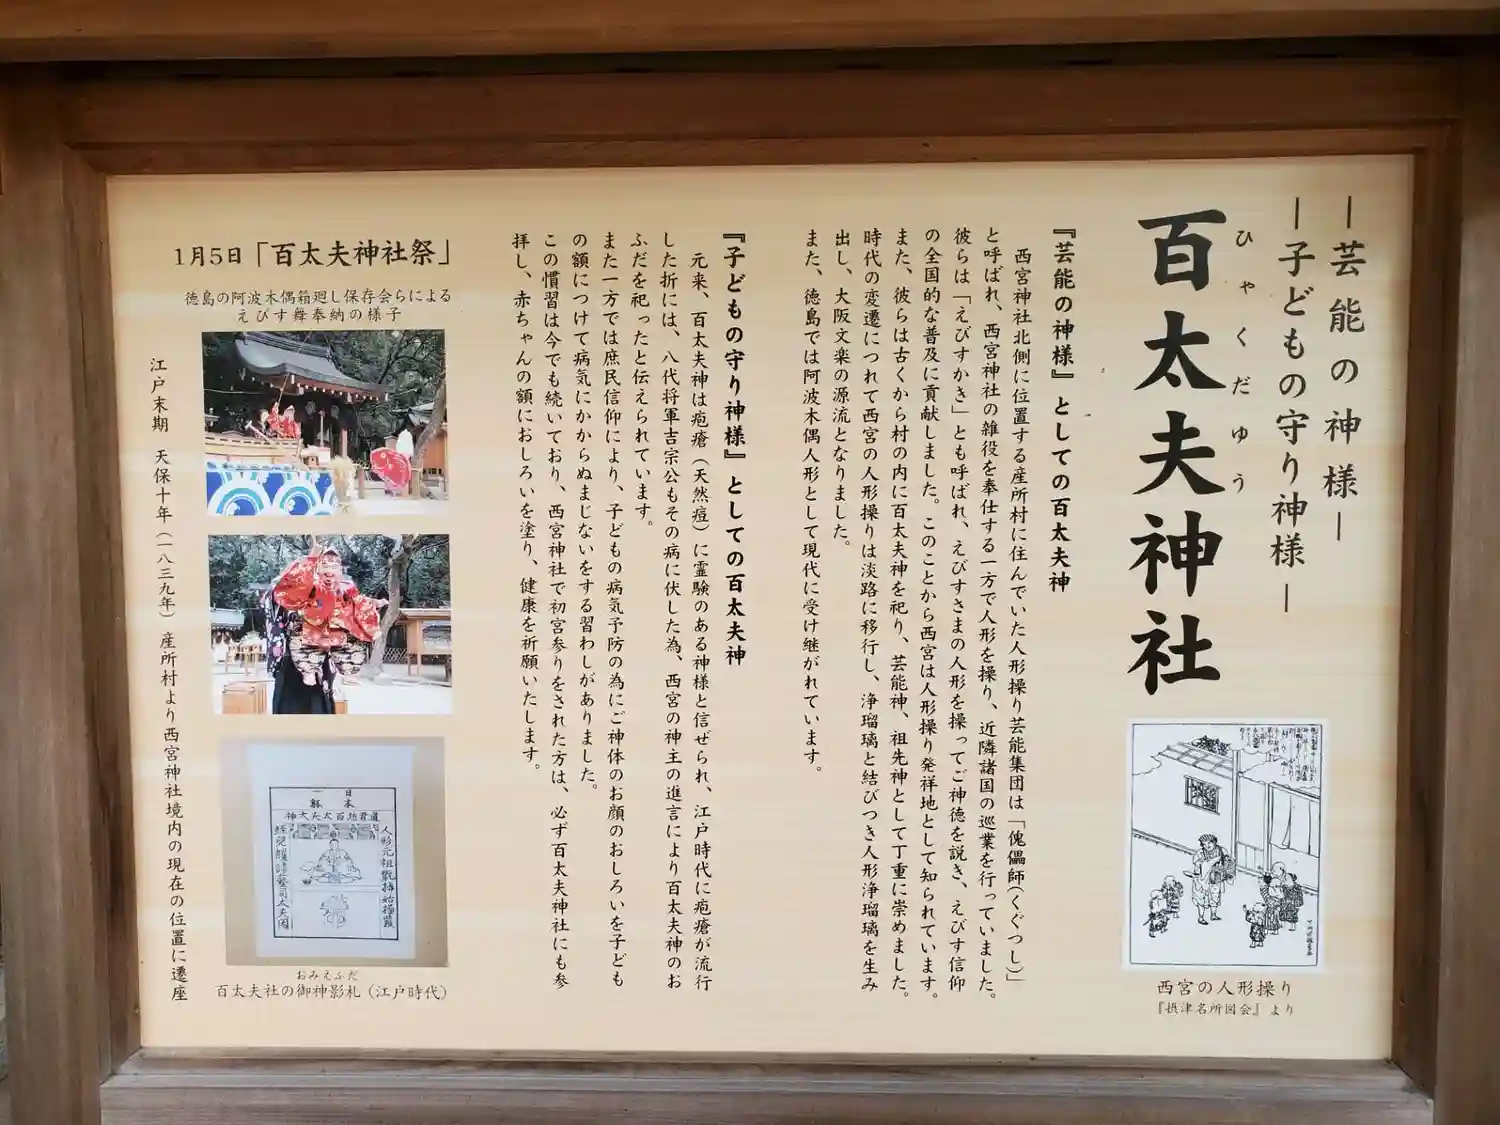 ―芸能の神様―
―子どもの守り神様―
ひゃくだゆう
百太夫神社
西宮の人形操り
『摂津名所図会』より
『芸能の神様』としての百太夫神
西宮神社北側に位置する産所村に住んでいた人形操り芸能集団は「傀儡師(くぐつし)」
と呼ばれ、西宮神社の雑役を奉仕する一方で人形を操り、近隣諸国の巡業を行っていました。
彼らは「えびすかき」とも呼ばれ、えびすさまの人形を操ってご神徳を説き、えびす信仰
の全国的な普及に貢献しました。このことから西宮は人形操り発祥地として知られています。
また、彼らは古くから村の内に百太夫神を祀り、芸能神、祖先神として丁重に崇めました。
時代の変遷につれて西宮の人形操りは淡路に移行し、浄瑠璃と結びつき人形浄瑠璃を生み
出し、大阪文楽の源流となりました。
また、徳島では阿波木偶人形として現代に受け継がれています。
『子どもの守り神様』としての百太夫神
元来、百太夫神は疱瘡(天然痘)に霊験のある神様と信ぜられ、江戸時代に疱瘡が流行
した折には、八代将軍吉宗公もその病に伏した為、西宮の神主の進言により百太夫神のお
ふだを祀ったと伝えられています。
また一方では庶民信仰により、子どもの病気予防の為にご神体のお顔のおしろいを子ども
の額につけて病気にかからぬまじないをする習わしがありました。
この慣習は今でも続いており、西宮神社で初宮参りをされた方は、必ず百太夫神社にも参
拝し、赤ちゃんの額におしろいを塗り、健康を祈願いたします。
1月5日「百太夫神社祭」
徳島の阿波木偶箱廻し保存会らによる
えびす舞奉納の様子
日本一
道君坊百太夫大神
おみえふだ
百太夫社の御神影札(江戸時代)
江戸末期 天保十年(一八三九年)産所村より西宮神社境内の現在の位置に遷座